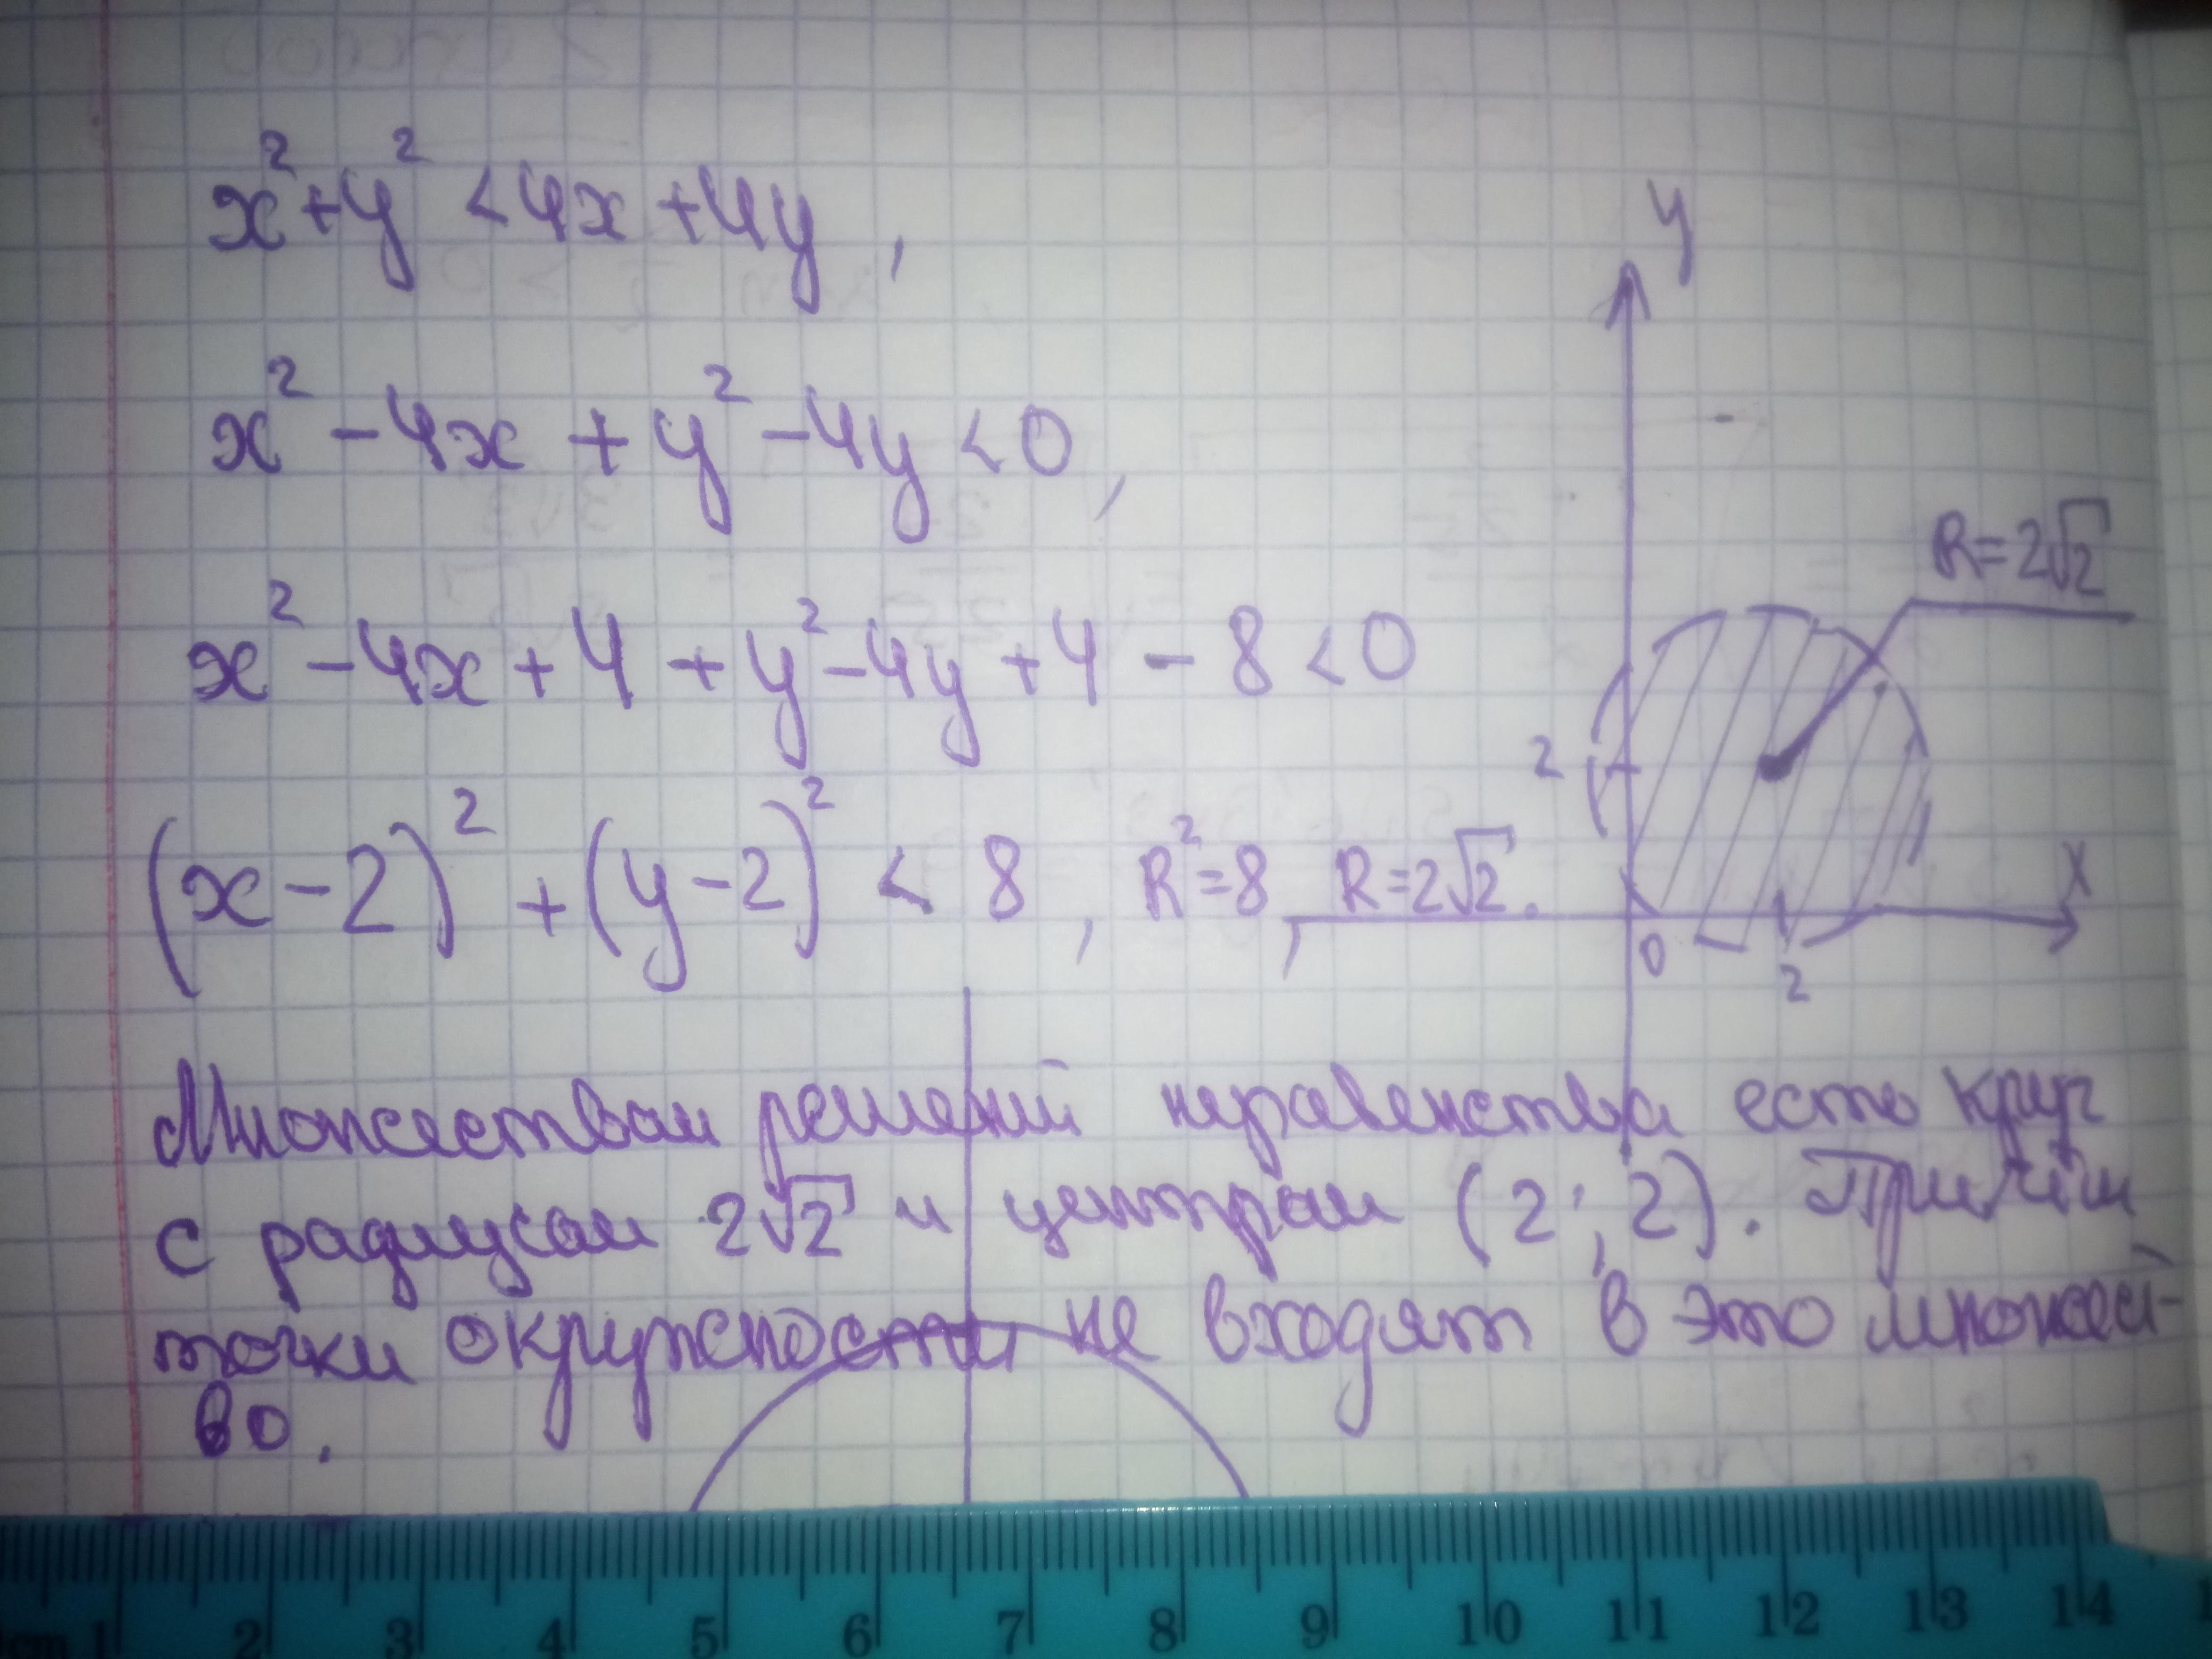 x² + y² < 4x + 4y,
x² - 4x + y² - 4y < 0,
x² - 4x + 4 + y² - 4y + 4 - 8 < 0
(x - 2)² + (y - 2)² < 8, R² = 8, R = 2√2.
y
R = 2√2
2
x
0
2
Множеством решений неравенства есть круг
с радиусом 2√2 и центром (2; 2). Причём
точки окружности не входят в это множест-
во.
cm 1 2 3 4 5 6 7 8 9 10 11 12 13 14